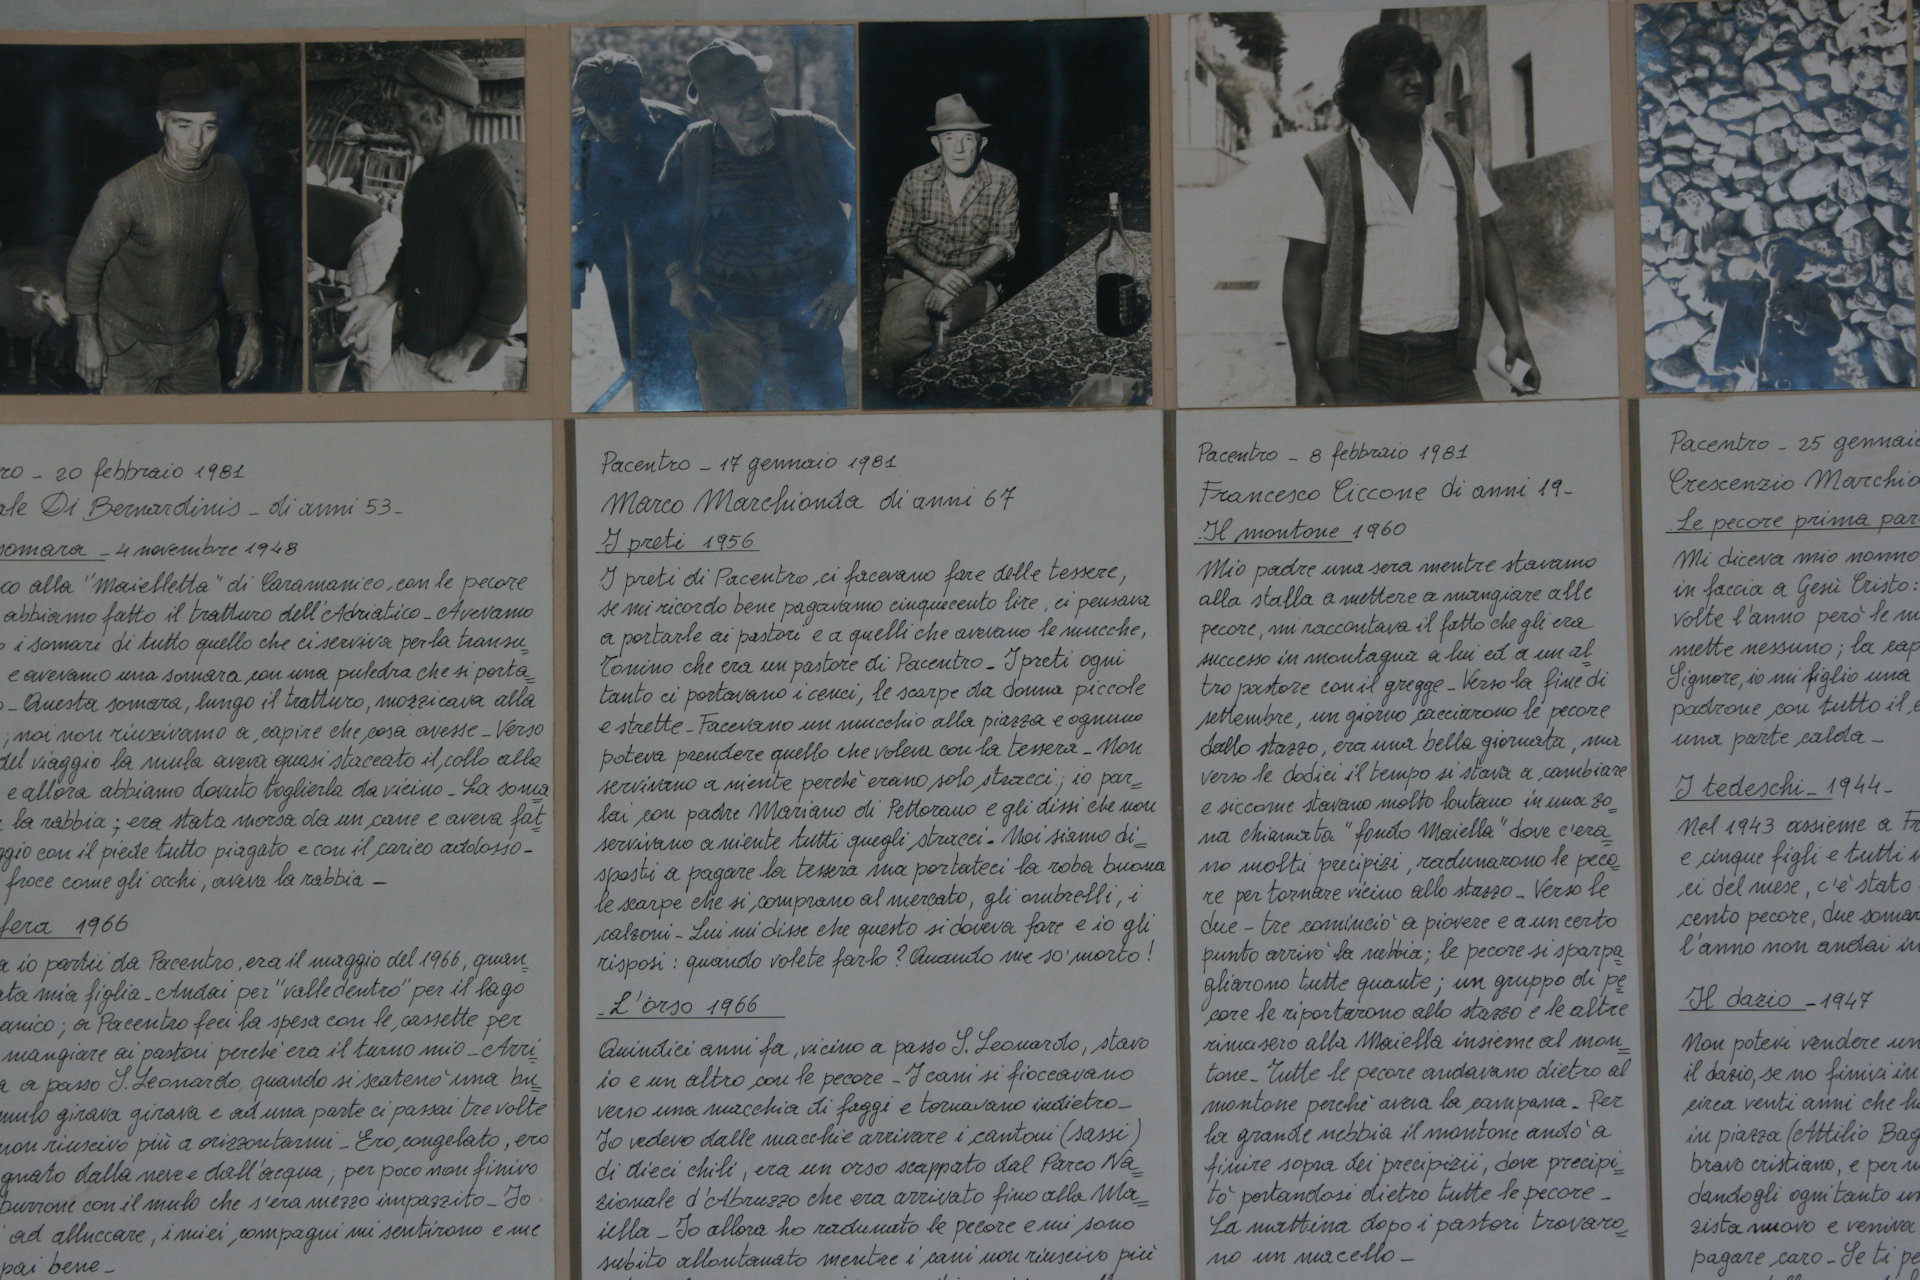 ro - 20 febbraio 1981
ale Di Bernardinis - di anni 53 -
somara - 4 novembre 1948
co alla "Maielletta" di Caramanico, con le pecore
abbiamo fatto il tratturo dell'Adriatico - Avevamo
i somari di tutto quello che ci serviva per la transu=
e avevamo una somara con una puledra che si porta=
- Questa somara, lungo il tratturo, mozzicava alla
; noi non riuscivamo a capire che cosa avesse - Verso
del viaggio la mula aveva quasi staccato il collo alla
e allora abbiamo dovuto toglierla da vicino - La soma
la rabbia; era stata morsa da un cane e aveva fat=
ggio con il piede tutto piagato e con il carico addosso -
froce come gli occhi, aveva la rabbia -
fera 1966
a io partii da Pacentro, era il maggio del 1966, quan=
ata mia figlia - Andai per "valledentro" per il lago
anico; a Pacentro feci la spesa con le cassette per
mangiare ai pastori perchè era il turno mio - Arri=
a a passo S. Leonardo, quando si scatenò una bu=
mulo girava girava e ad una parte ci passai tre volte
non riuscivo più a orizzontarmi - Ero congelato, ero
gnato dalla neve e dall'acqua, per poco non finivo
burrone con il mulo che s'era mezzo impazzito - Io
ad alluccare, i miei compagni mi sentirono e me
pai bene -
Pacentro - 17 gennaio 1981
Marco Marchionda di anni 67
I preti 1956
I preti di Pacentro, ci facevano fare delle tessere,
se mi ricordo bene pagavamo cinquecento lire, ci pensava
a portarle ai pastori e a quelli che avevano le mucche,
Tonino che era un pastore di Pacentro - I preti ogni
tanto ci portavano i cenci, le scarpe da donna piccole
e strette - Facevano un mucchio alla piazza e ognuno
poteva prendere quello che voleva con la tessera - Non
servivano a niente perchè erano solo stracci; io par=
lai con padre Mariano di Pettorano e gli dissi che non
servivano a niente tutti quegli stracci - Noi siamo di=
sposti a pagare la tessera ma portateci la roba buona
le scarpe che si comprano al mercato, gli ombrelli, i
calzoni - Lui mi disse che questo si doveva fare e io gli
risposi: quando volete farlo? Quando me so' morto!
- L'orso 1966
Quindici anni fa, vicino a passo S. Leonardo, stavo
io e un altro con le pecore - I cani si fioccavano
verso una macchia di faggi e tornavano indietro -
Io vedevo dalle macchie arrivare i cantoni (sassi)
di dieci chili, era un orso scappato dal Parco Na=
zionale d'Abruzzo che era arrivato fino alla Ma=
iella - Io allora ho radunato le pecore e mi sono
subito allontanato mentre i cani non riuscivo più
Pacentro - 8 febbraio 1981
Francesco Ciccone di anni 19 -
Il montone 1960
Mio padre una sera mentre stavamo
alla stalla a mettere a mangiare alle
pecore, mi raccontava il fatto che gli era
successo in montagna a lui ed a un al=
tro pastore con il gregge - Verso la fine di
settembre, un giorno cacciarono le pecore
dallo stazzo, era una bella giornata, ma
verso le dodici il tempo si stava a cambiare
e siccome stavano molto lontano in una zo=
na chiamata "fondo Maiella" dove c'era=
no molti precipizi, radunarono le peco=
re per tornare vicino allo stazzo - Verso le
due - tre cominciò a piovere e a un certo
punto arrivò la nebbia; le pecore si sparpa=
gliarono tutte quante; un gruppo di pe=
core le riportarono allo stazzo e le altre
rimasero alla Maiella insieme al mon=
tone - Tutte le pecore andavano dietro al
montone perchè aveva la campana - Per
la grande nebbia il montone andò a
finire sopra dei precipizii, dove precipi=
tò portandosi dietro tutte le pecore -
La mattina dopo i pastori trovaro=
no un macello -
Pacentro - 25 gennaio
Crescenzio Marchio
Le pecore prima par
Mi diceva mio nonno
in faccia a Gesù Cristo:
volte l'anno però le m
mette nessuno; la cap
Signore, io mi figlio una
padrone con tutto il
una parte calda -
I tedeschi - 1944 -
Nel 1943 assieme a Fr
e cinque figli e tutti
ci del mese, c'è stato
cento pecore, due somar
l'anno non andai in
Il dazio - 1947
Non potevi vendere un
il dazio, se no finivi in
circa venti anni che h
in piazza (Attilio Bag
bravo cristiano, e per
dandogli ogni tanto un
zista nuovo e veniva
pagare caro - Se ti pe